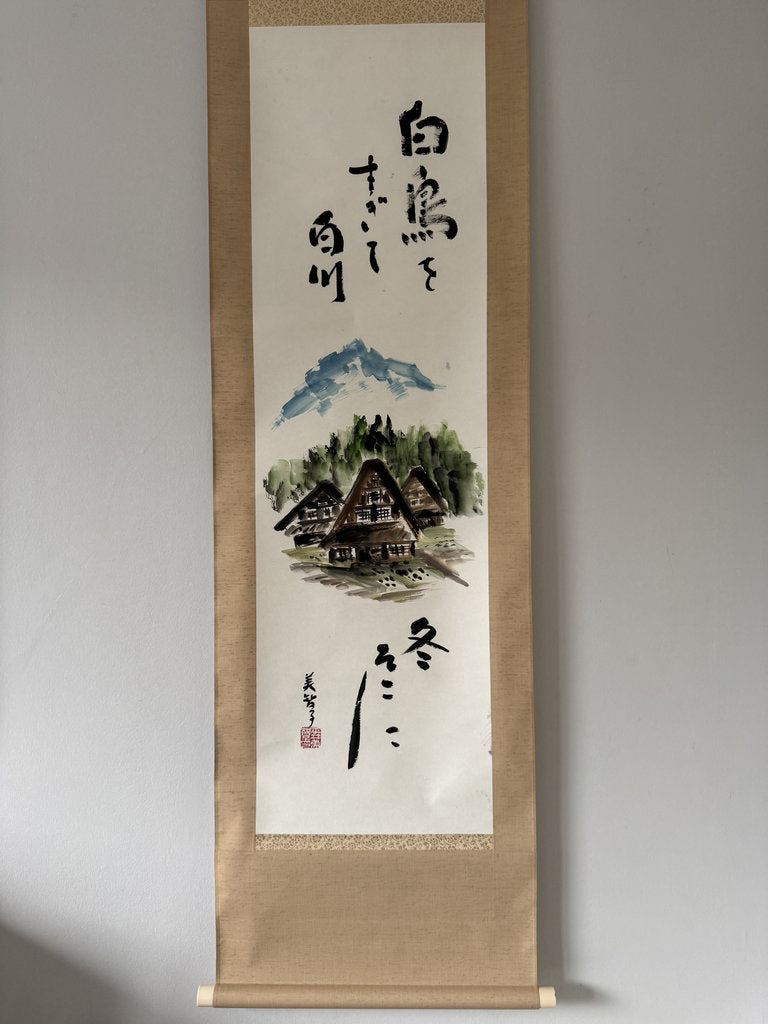 白鳥を
白川
冬
そこに
美智子